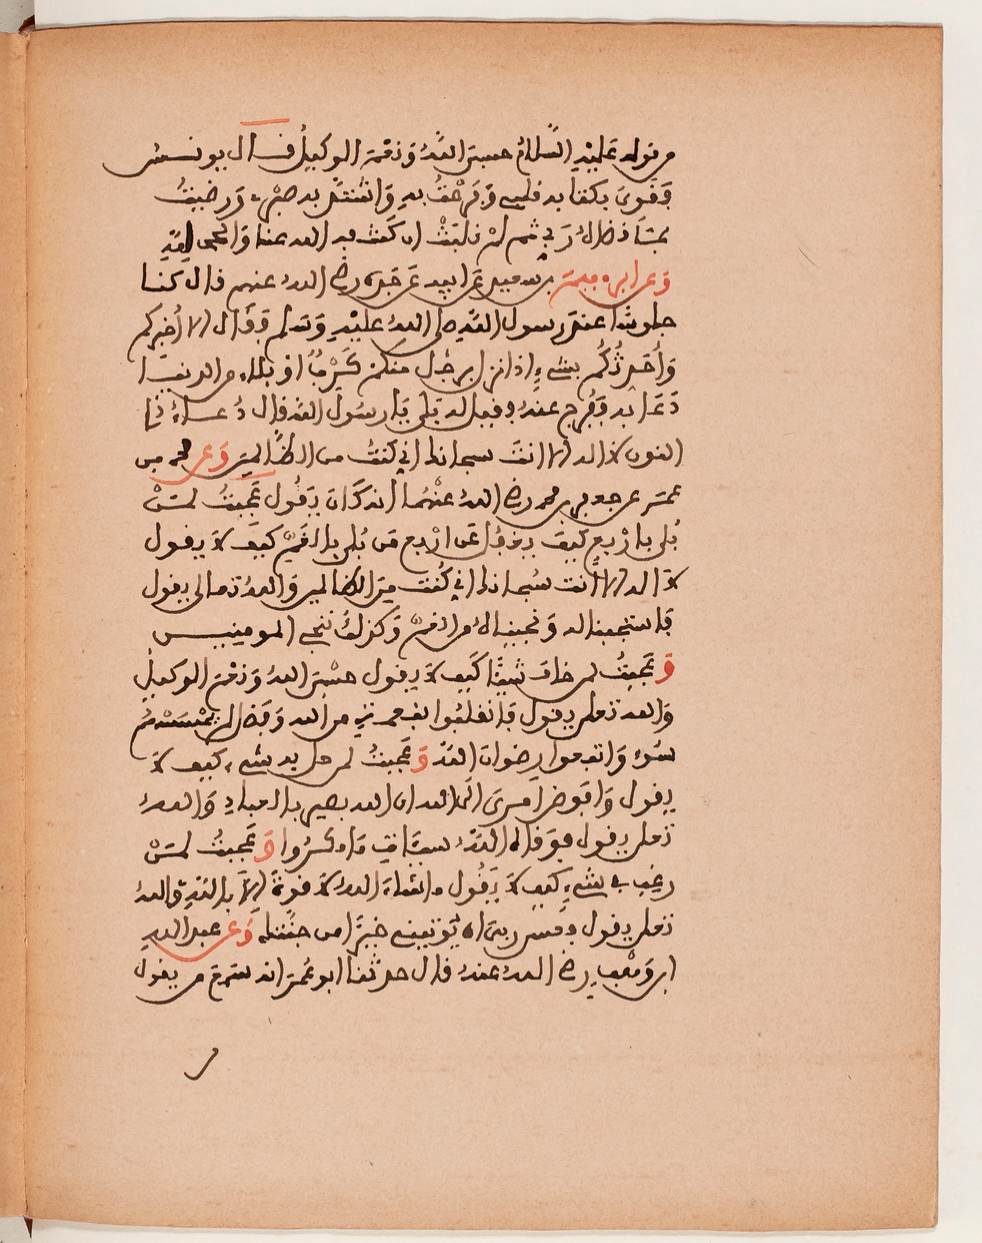 من قوله عليه السلام حسبي الله ونعم الوكيل قال يونس
فقوى بكتابه قلبي وفرحت به واشتد به صبري ورضيت
ثم لم نلبث ان كشف به الله عنا والحمد لله
وعن ابرهيم بن سعيد عن ابيه عن جده رضي الله عنهم قال كنا
جلوسا عند رسول الله صلى الله عليه وسلم فقال الا اخبركم
واحدثكم بشيء اذا نزل برجل منكم كرب او بلاء من الدنيا
دعا به ففرج عنه فقيل له بلى يا رسول الله قال دعاء ذا
النون لا اله الا انت سبحانك اني كنت من الظالمين وعن محمد بن
عمر عن جعفر بن محمد رضي الله عنهما انه كان يقول عجبت لمن
بلي باربع كيف يغفل عن اربع من بلي بالغم كيف لا يقول
لا اله الا انت سبحانك اني كنت من الظالمين والله تعالى يقول
فاستجبنا له ونجيناه من الغم وكذلك ننجي المومنين
وعجبت لمن خاف شيئا كيف لا يقول حسبي الله ونعم الوكيل
والله تعلى يقول فانقلبوا بنعمة من الله وفضل لم يمسسهم
سوء واتبعوا رضوان الله وعجبت لمن حل به شيء كيف لا
يقول وافوض امري الى الله ان الله بصير بالعباد والله
تعلى يقول فوقاه الله سيئات ما مكروا وعجبت لمن
رغب في شيء كيف لا يقول ما شاء الله لا قوة الا بالله والله
تعلى يقول فعسى ربي ان يوتيني خيرا من جنتك وعن عبد الله
ابن وهب رضي الله عنه قال حدثنا ابو عمر انه سمع من يقول